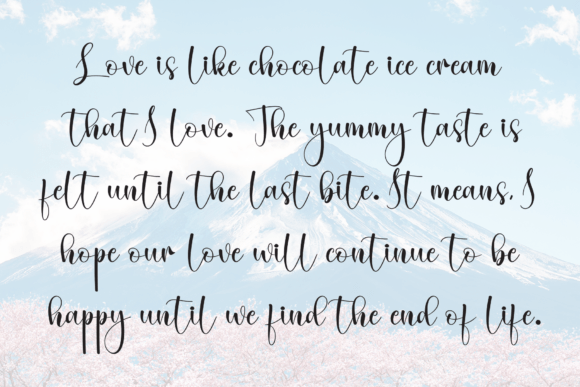 Love is like chocolate ice cream
that I love. The yummy taste is
felt until the last bite. It means, I
hope our love will continue to be
happy until we find the end of life.